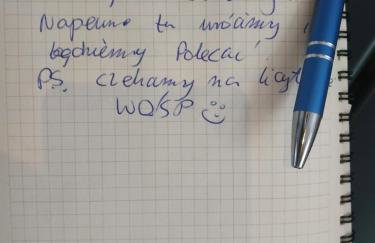 Napewno tu wrócimy i
będziemy polecać
PS. czekamy na
WOŚP